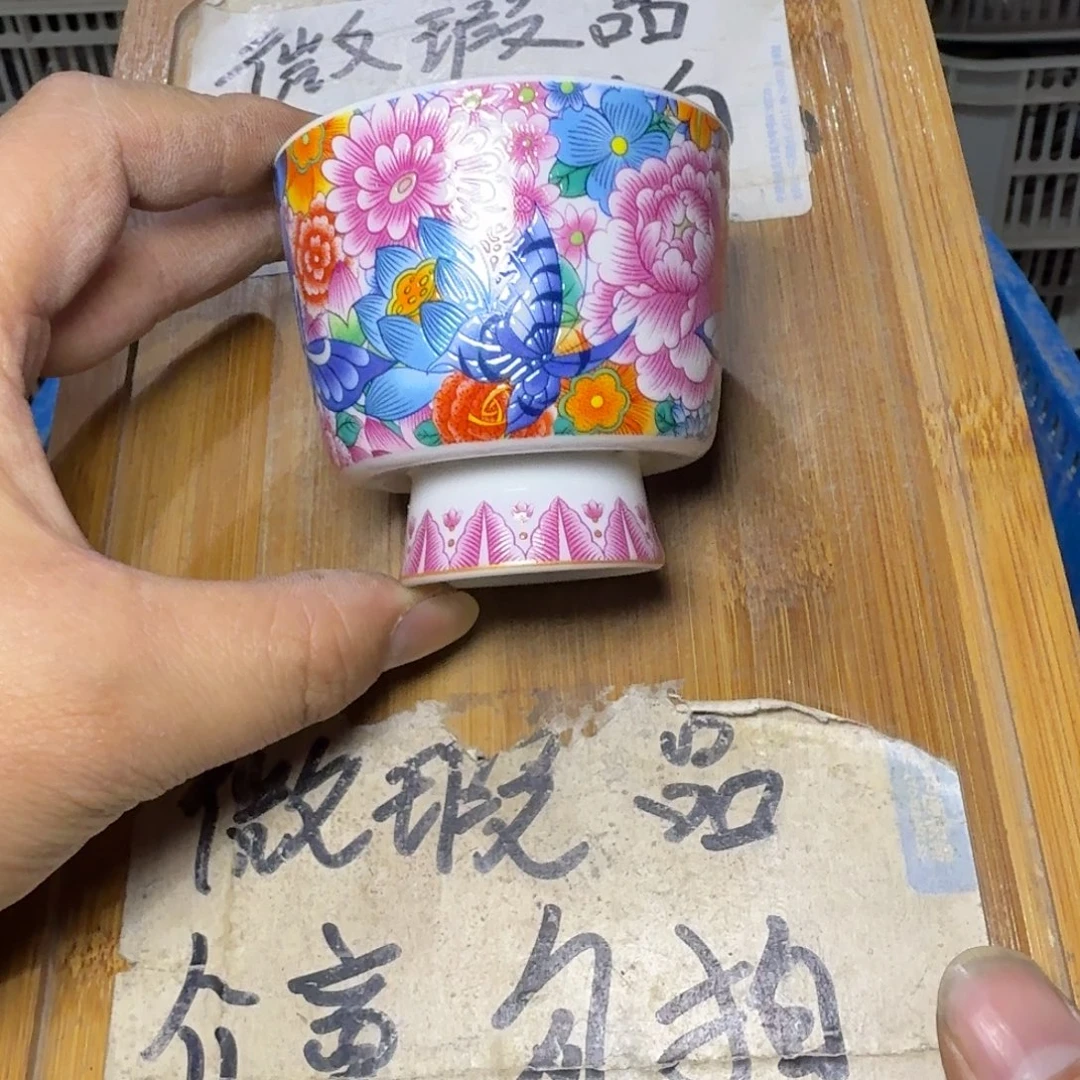 微瑕品
拍
微瑕品
介意勿拍